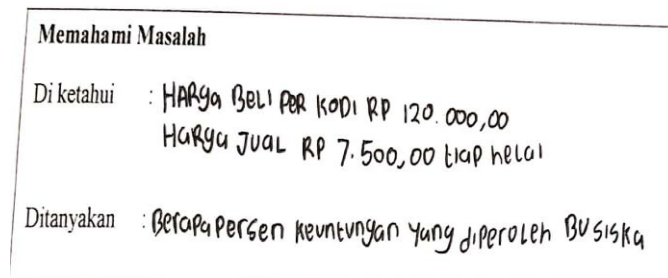 Memahami Masalah
Di ketahui : HARga BELI PER KODI RP 120.000,00
Harga JuaL RP 7.500,00 tiap helai
Ditanyakan : Berapa Persen keuntungan yang diperoleh BU siska